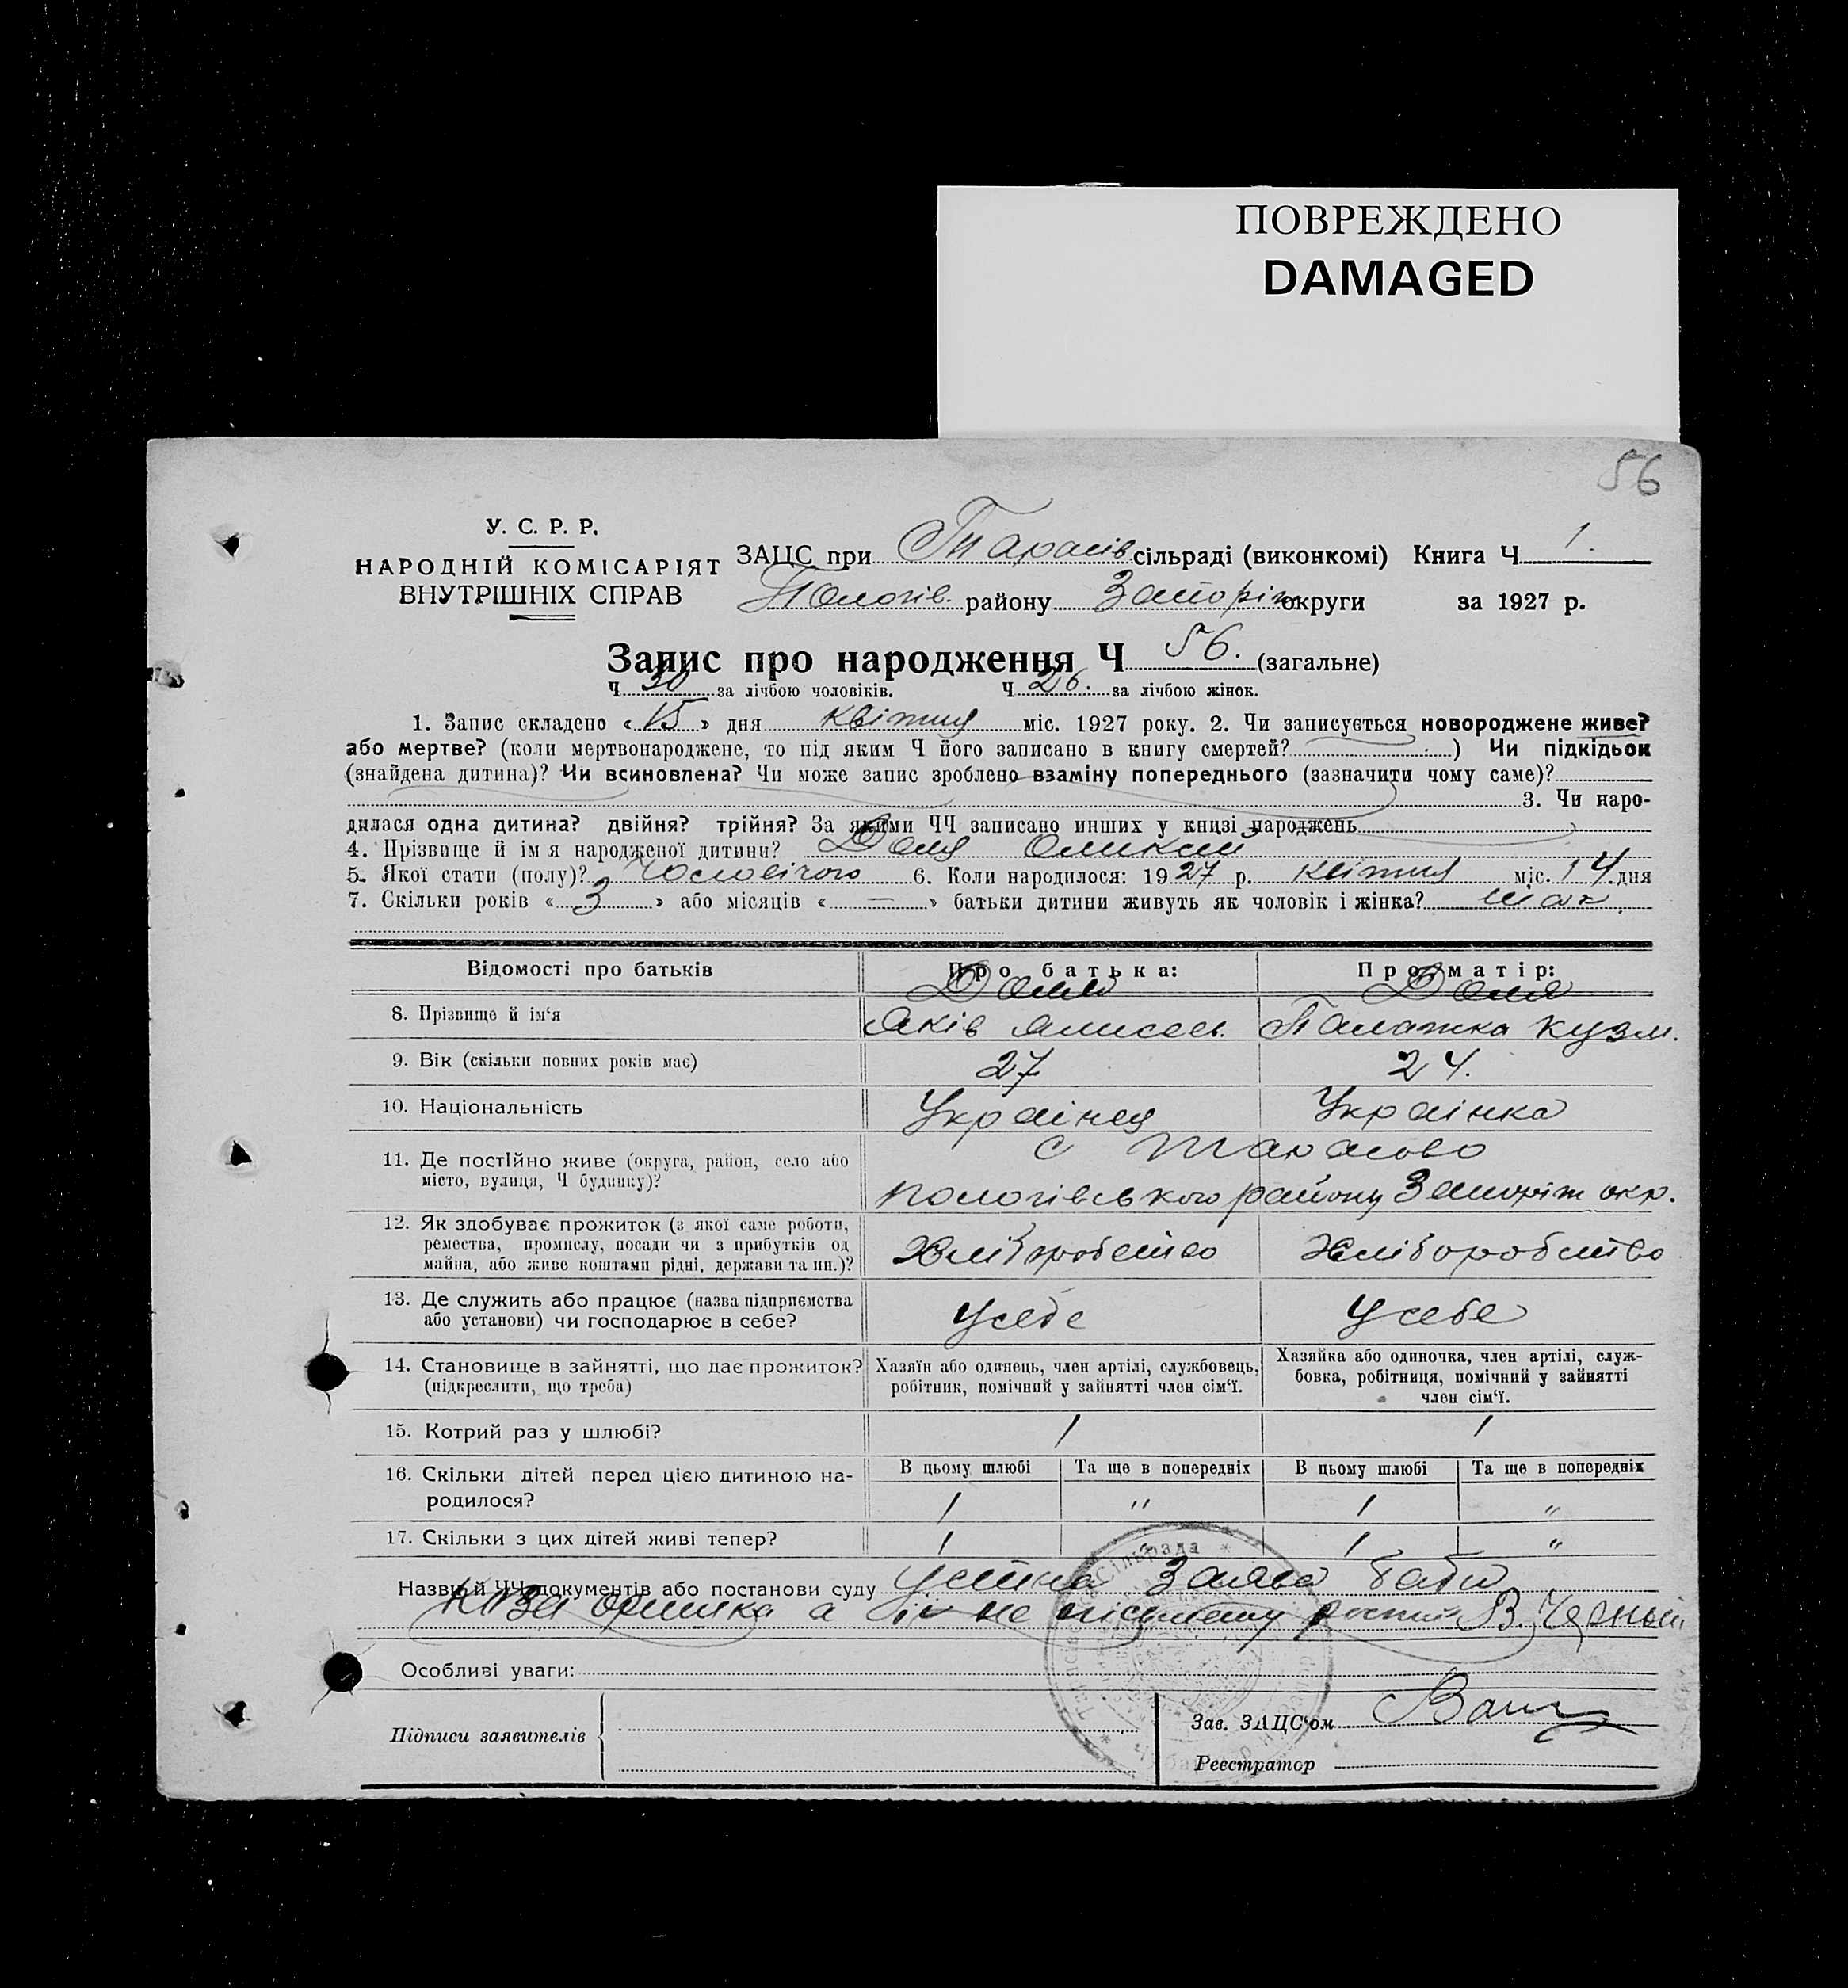 ПОВРЕЖДЕНО
DAMAGED
56
У. С. Р. Р.
НАРОДНІЙ КОМІСАРІЯТ
ВНУТРІШНІХ СПРАВ
ЗАЦС при Тарасів сільраді (виконкомі) Книга Ч 1.
Пологів. району Запоріж округи за 1927 р.
Запис про народження Ч 56. (загальне)
Ч 30 за лічбою чоловіків. Ч 26. за лічбою жінок.
1. Запис складено « 15 » дня квітня міс. 1927 року. 2. Чи записується новороджене живе?
або мертве? (коли мертвонароджене, то під яким Ч його записано в книгу смертей? ) Чи підкідьок
(знайдена дитина)? Чи всиновлена? Чи може запис зроблено взаміну попереднього (зазначити чому саме)?
3. Чи наро-
дилася одна дитина? двійня? трійня? За якими ЧЧ записано инших у книзі народжень
4. Прізвище й ім я народженої дитини? Доля Олексій
5. Якої стати (полу)? Чоловічого 6. Коли народилося: 19 27 р. квітня міс. 14 дня
7. Скільки років « 3 » або місяців « — » батьки дитини живуть як чоловік і жінка? так
Відомості про батьків Про батька: Про матір:
Доля Доля
8. Прізвище й ім‘я Яків Палажка Кузм.
9. Вік (скільки повних років має) 27 24.
10. Національність Українец Українка
11. Де постійно живе (округа, район, село або
місто, вулиця, Ч будинку)?
с Тарасово
Пологівського району Запоріж окр.
12. Як здобуває прожиток (з якої саме роботи,
ремества, промислу, посади чи з прибутків од
майна, або живе коштами рідні, держави та ин.)?
Хліборобство Хліборобство
13. Де служить або працює (назва підприємства
або установи) чи господарює в себе?
У себе У себе
14. Становище в зайнятті, що дає прожиток?
(підкреслити, що треба)
Хазяїн або одинець, член артілі, службовець,
робітник, помічний у зайнятті член сім‘ї.
Хазяйка або одиночка, член артілі, служ-
бовка, робітниця, помічний у зайнятті
член сім‘ї.
15. Котрий раз у шлюбі? 1 1
16. Скільки дітей перед цією дитиною на-
родилося?
В цьому шлюбі Та ще в попередніх В цьому шлюбі Та ще в попередніх
1 " 1 "
17. Скільки з цих дітей живі тепер? 1 1 "
Назви й ЧЧ документів або постанови суду Устна Заява баби
а не письмену В. Чёрный
Особливі уваги:
Підписи заявителів
Зав. ЗАЦС‘ом
Реестратор